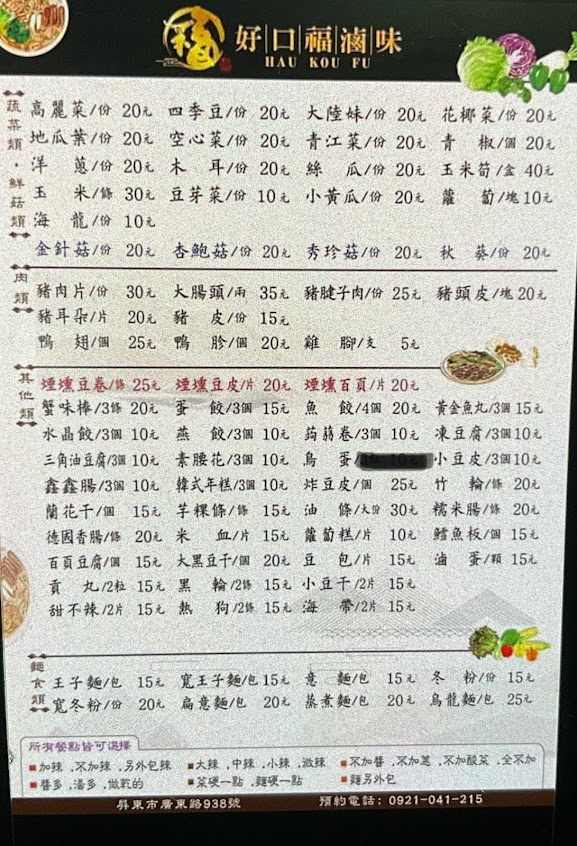 好口福滷味
HAU KOU FU
蔬菜類・鮮菇類
高麗菜/份 20元 四季豆/份 20元 大陸妹/份 20元 花椰菜/份 20元
地瓜葉/份 20元 空心菜/份 20元 青江菜/份 20元 青椒/個 20元
洋蔥/份 20元 木耳/份 20元 絲瓜/份 20元 玉米筍/盒 40元
玉米/條 30元 豆芽菜/份 10元 小黃瓜/份 20元 蘿蔔/塊 10元
海龍/份 10元
金針菇/份 20元 杏鮑菇/份 20元 秀珍菇/份 20元 秋葵/份 20元
肉類
豬肉片/份 30元 大腸頭/兩 35元 豬腱子肉/份 25元 豬頭皮/塊 20元
豬耳朵/片 20元 豬皮/份 15元
鴨翅/個 25元 鴨胗/個 20元 雞腳/支 5元
其他類
煙燻豆卷/條 25元 煙燻豆皮/片 20元 煙燻百頁/片 20元
蟹味棒/3條 20元 蛋餃/3個 15元 魚餃/4個 20元 黃金魚丸/3個 15元
水晶餃/3個 10元 燕餃/3個 10元 蒟蒻卷/3個 10元 凍豆腐/3個 10元
三角油豆腐/3個 10元 素腰花/3個 10元 鳥蛋/ 小豆皮/3個 10元
鑫鑫腸/3個 10元 韓式年糕/3個 10元 炸豆皮/個 25元 竹輪/條 20元
蘭花干/個 15元 芋粿條/條 15元 油條/大份 30元 糯米腸/條 20元
德國香腸/條 20元 米血/片 15元 蘿蔔糕/片 10元 鱈魚板/個 15元
百頁豆腐/個 15元 大黑豆干/個 20元 豆包/片 15元 滷蛋/顆 15元
貢丸/2粒 15元 黑輪/2條 15元 小豆干/2片 15元
甜不辣/2片 15元 熱狗/2條 15元 海帶/2片 15元
麵食類
王子麵/包 15元 寬王子麵/包 15元 意麵/包 15元 冬粉/份 15元
寬冬粉/份 20元 扁意麵/包 20元 蒸煮麵/包 20元 烏龍麵/包 25元
所有餐點皆可選擇
■加辣,不加辣,另外包辣 ■大辣,中辣,小辣,微辣 ■不加醬,不加蔥,不加酸菜,全不加
■醬多,湯多,做乾的 ■菜硬一點,麵硬一點 ■麵另外包
屏東市廣東路938號 預約電話:0921-041-215